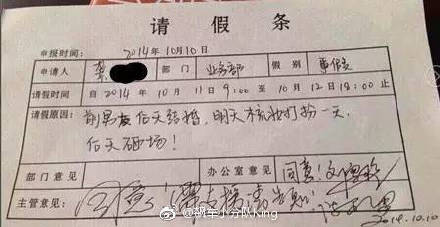 请假条
申报时间: 2014年10月10日
申请人 部门 业务部 假别 事假
请假时间 自2014年10月11日9:00至10月12日18:00止
请假原因: 前男友后天结婚,明天梳妆打扮一天,
后天砸场!
部门意见 办公室意见 同意!
主管意见: 同意!需支援请告知!
2014.10.10
@飒军小分队King